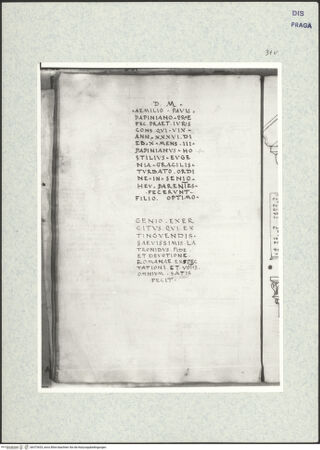 DIS
PRAGA
31v
D. M.
AEMILIO · PAVLI
PAPINIANO · PRAE
FEC. PRAET. IVRIS
CONS. QVI · VIX ·
ANN · XXXVI. DI
ED · X · MENS · III ·
PAPINIANVS · HO
STILIVS · EVGE
NIA · GRACILIS ·
TVRBATO · ORDI
NE · IN · SENIO ·
HEV · PARENTES ·
FECERVNT ·
FILIO · OPTIMO ·
GENIO · EXER
CITVS · QVI · EX
TINGVENDIS ·
SAEVISSIMIS LA
TRONIBVS FIDE
ET DEVOTIONE
ROMANAE EXSPEC
TATIONI · ET · VOTIS
OMNIVM · SATIS
FECIT ·